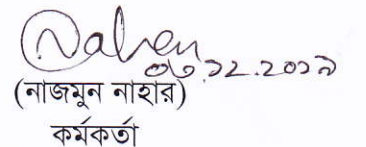 Naher
০৬.১২.২০১৯
(নাজমুন নাহার)
কর্মকর্তা